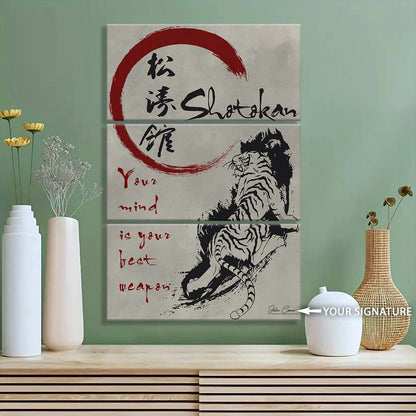 松
濤
館
Shotokan
Your
mind
is your
best
weapon
YOUR SIGNATURE